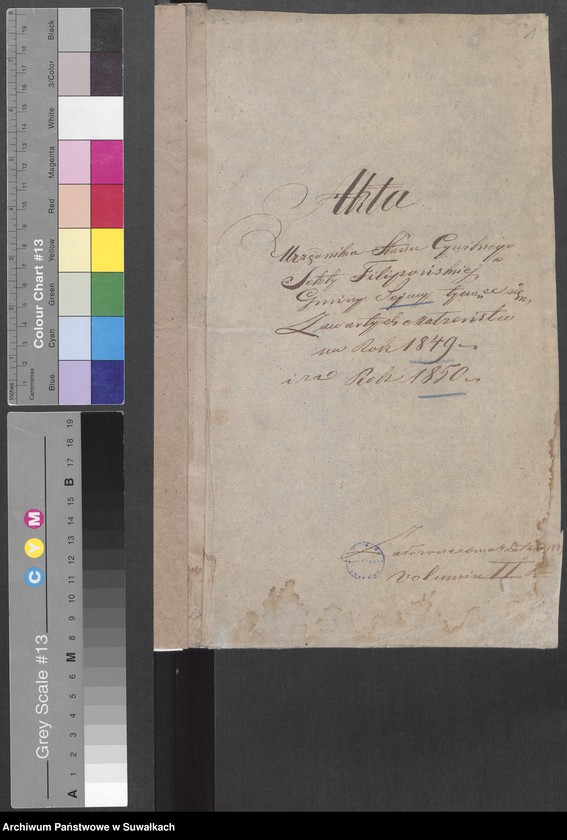 1
Akta
Urzędnika Stanu Cywilnego
Sekty Filipońskiej
Gminy Sejwy tyczące się
Zawartych Małżeństw
na Rok 1849
i za Rok 1850
Volumin II
Colour Chart #13
Blue
Cyan
Green
Yellow
Red
Magenta
White
3/Color
Black
Inches
Centimetres
1 2 3 4 5 6 7 8 9 10 11 12 13 14 15 16 17 18 19
Grey Scale #13
C Y M
A 1 2 3 4 5 6 M 8 9 10 11 12 13 14 15 B 17 18 19
Archiwum Państwowe w Suwałkach